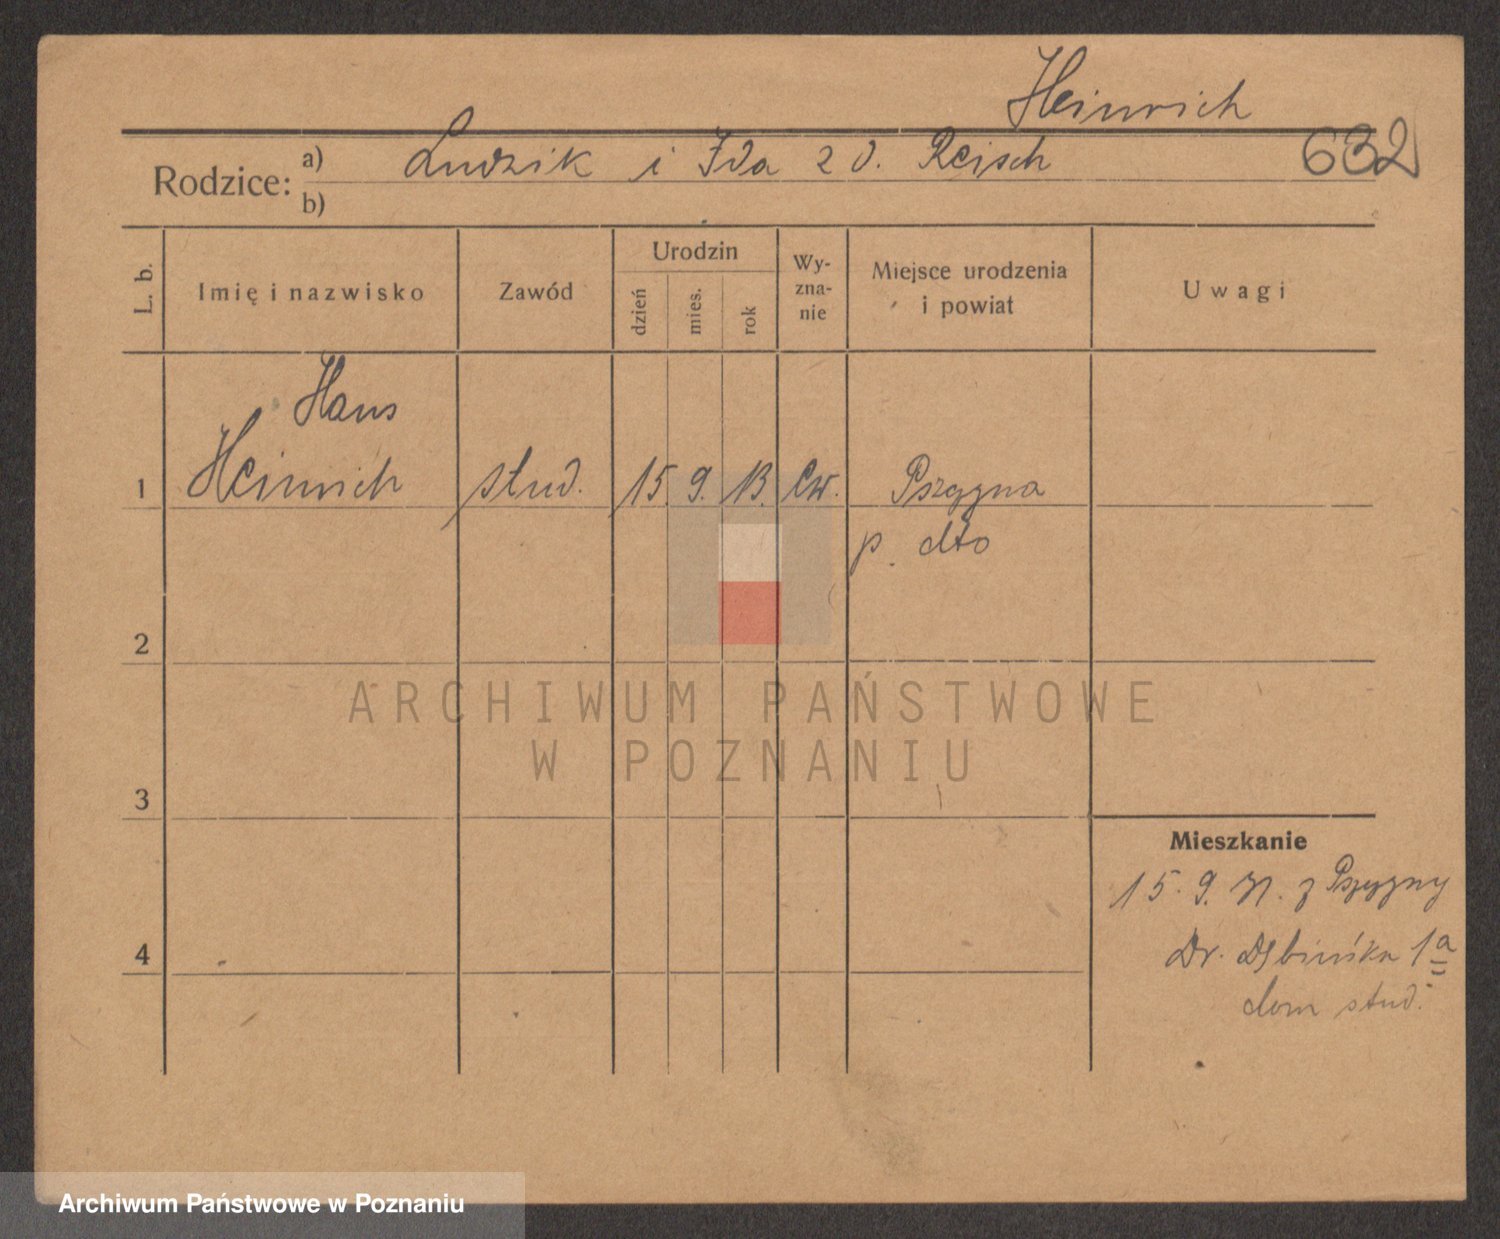 Heinrich
632
Rodzice: a) Ludzik i Ida z d. Reisch
b)
L. b. Imię i nazwisko Zawód Urodzin dzień mies. rok Wy-zna-nie Miejsce urodzenia i powiat Uwagi
Hans
1 Heinrich stud. 15. 9. 13. Ew. Pszczyna
p. dto
2
ARCHIWUM PAŃSTWOWE
W POZNANIU
3
Mieszkanie
15. 9. z Pszczyny
4 Dr. Dębińska 1a
dom stud.
Archiwum Państwowe w Poznaniu